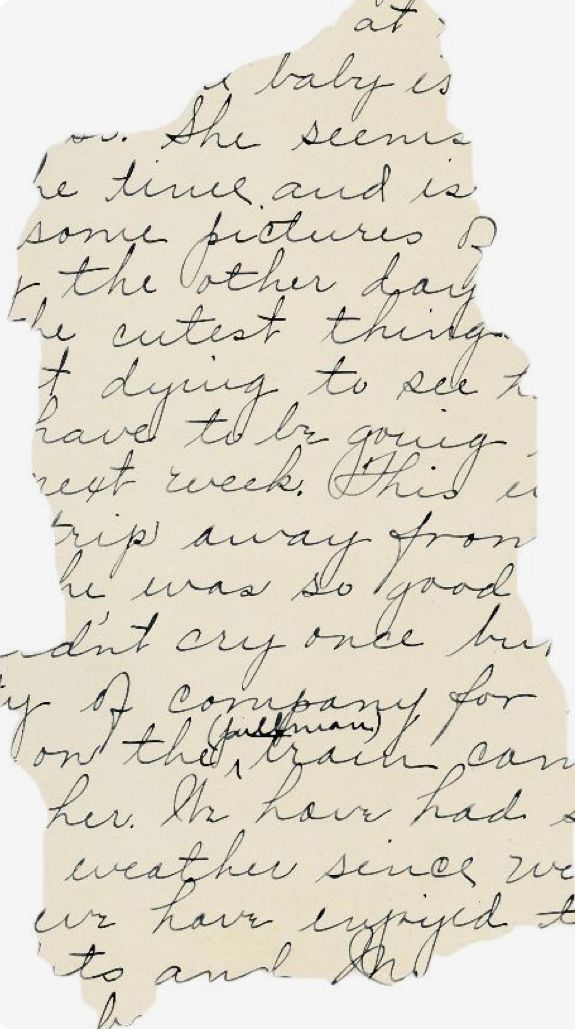 at
baby is
She seems
he time and is
some pictures
the other day
he cutest thing
t dying to see
have to be going
next week. This
trip away from
he was so good
dn't cry once bu
ty of company for
(pullman)
on the train can
her. We have had s
weather since we
we have enjoyed t
ts and